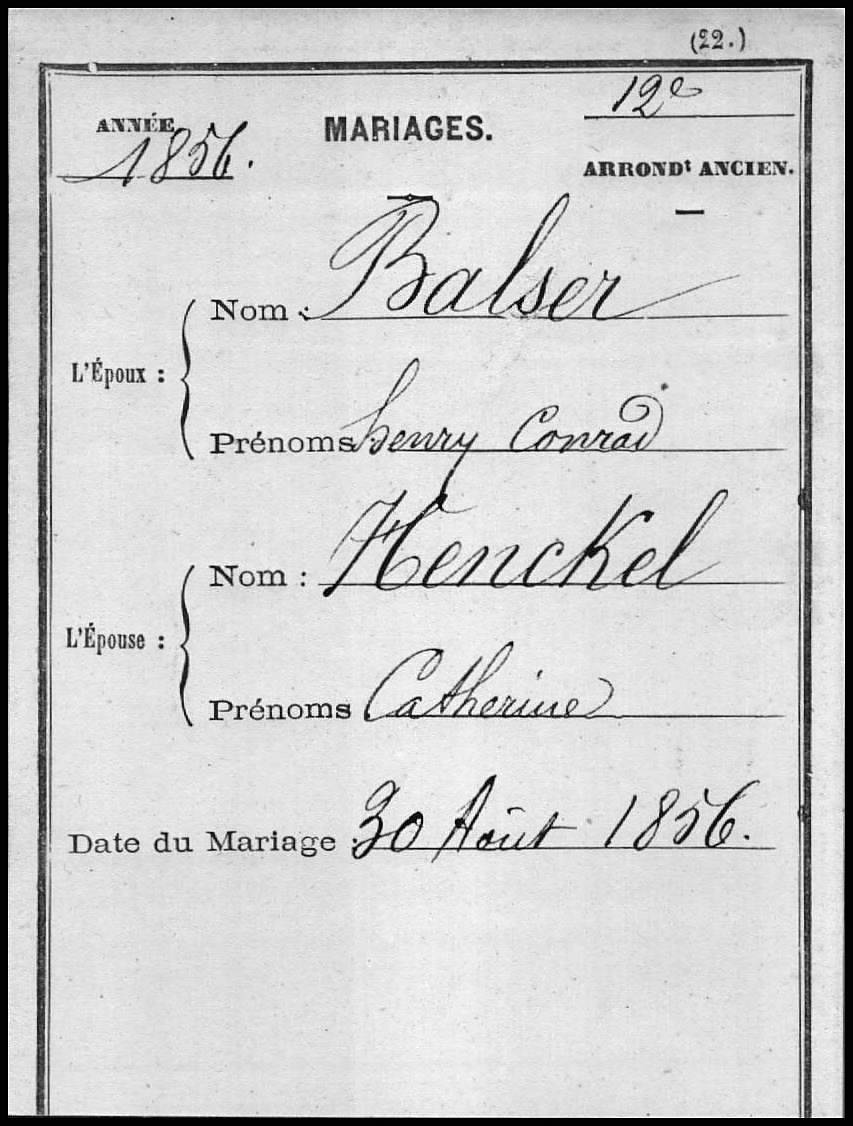 (22.)
ANNÉE
1856.
MARIAGES.
12e
ARRONDt ANCIEN.
L'Époux :
Nom : Balser
Prénoms : henry Conrad
L'Épouse :
Nom : Henckel
Prénoms Catherine
Date du Mariage : 30 Août 1856.